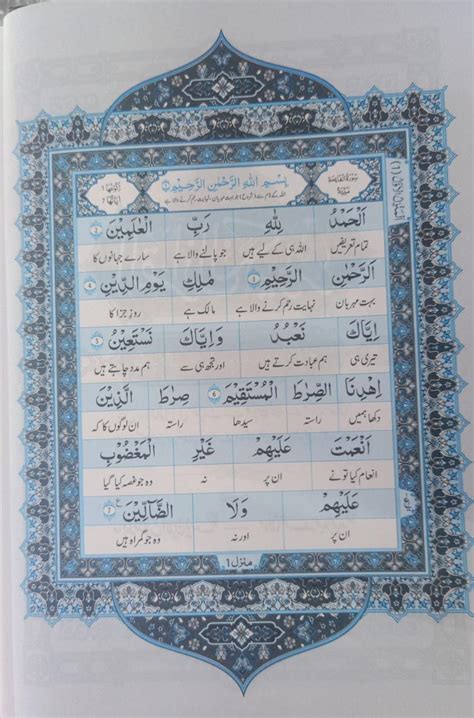 سورة الفاتحة مكية
بِسْمِ اللهِ الرَّحْمٰنِ الرَّحِيْمِ ١
رکوعها ١ اٰیاتها ٧
اللہ کے نام سے (شروع) جو بہت مہربان، نہایت رحم کرنے والا ہے
اَلْحَمْدُ لِلّٰهِ رَبِّ الْعٰلَمِيْنَ ٢
تمام تعریفیں اللہ ہی کے لیے ہیں جو پالنے والا ہے سارے جہانوں کا
الرَّحْمٰنِ الرَّحِيْمِ ٣ مٰلِكِ يَوْمِ الدِّيْنِ ٤
بہت مہربان نہایت رحم کرنے والا ہے مالک ہے روزِ جزا کا
اِيَّاكَ نَعْبُدُ وَاِيَّاكَ نَسْتَعِيْنُ ٥
تیری ہی ہم عبادت کرتے ہیں اور تجھ ہی سے ہم مدد چاہتے ہیں
اِهْدِنَا الصِّرَاطَ الْمُسْتَقِيْمَ ٦ صِرَاطَ الَّذِيْنَ
دکھا ہمیں راستہ سیدھا راستہ ان لوگوں کا کہ
اَنْعَمْتَ عَلَيْهِمْ غَيْرِ الْمَغْضُوْبِ
انعام کیا تو نے ان پر نہ وہ جو غصہ کیا گیا
عَلَيْهِمْ وَلَا الضَّآلِّيْنَ ٧
ان پر اور نہ وہ جو گمراہ ہیں
منزل 1